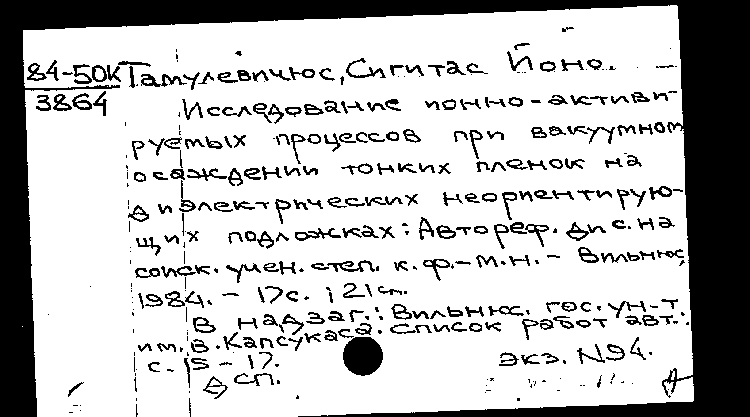 84-50К Тамулевичюс, Сигитас Йоно. —
3864
Исследование ионно-активи-
руемых процессов при вакуумном
осаждении тонких пленок на
диэлектрических неориентирую-
щих подложках: Автореф. дис. на
соиск. учен. степ. к. ф.-м. н. - Вильнюс,
1984. - 17с. ; 21см.
В надзаг.: Вильнюс. гос. ун-т
им. В. Капсукаса. Список работ авт.:
с. 15-17. экз. N94.
сп.